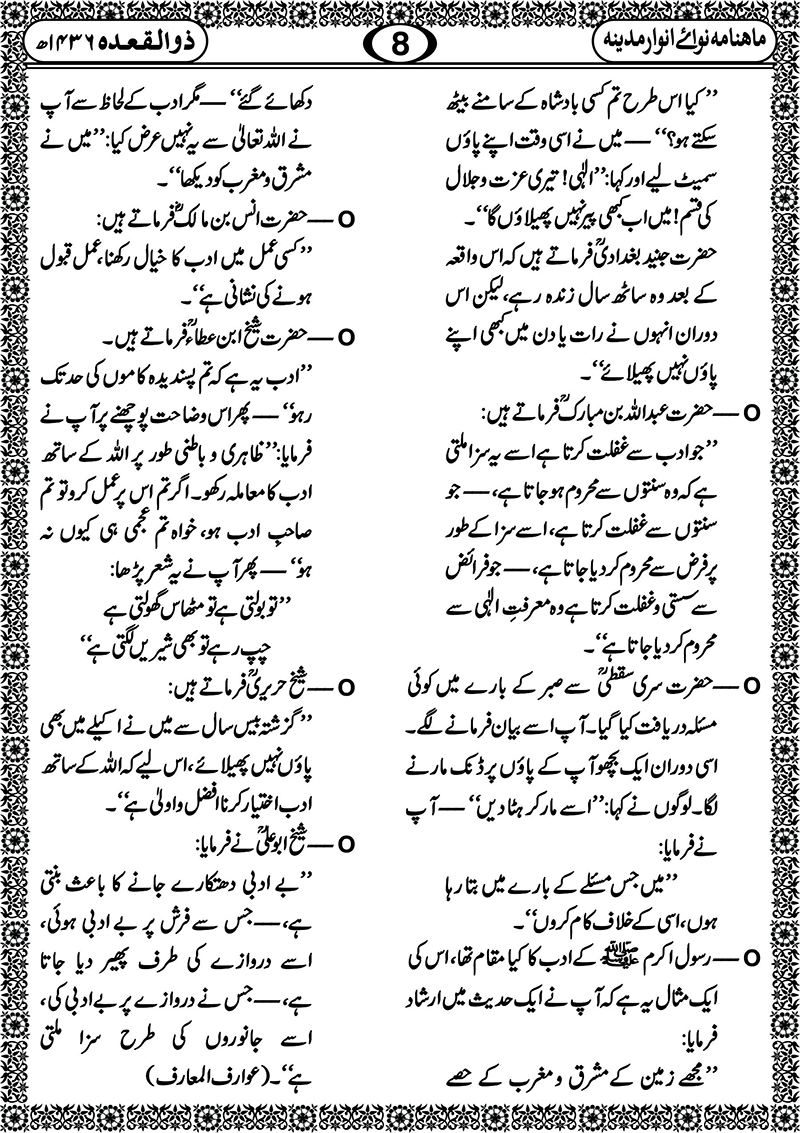 ماہنامہ نوائے انوار مدینہ
8
ذوالقعدہ ۱۴۳۶ھ
’’کیا اس طرح تم کسی بادشاہ کے سامنے بیٹھ
سکتے ہو؟‘‘ — میں نے اسی وقت اپنے پاؤں
سمیٹ لیے اور کہا: ’’الٰہی! تیری عزت و جلال
کی قسم! میں اب کبھی پیر نہیں پھیلاؤں گا‘‘۔
حضرت جنید بغدادیؒ فرماتے ہیں کہ اس واقعہ
کے بعد وہ ساٹھ سال زندہ رہے، لیکن اس
دوران انہوں نے رات یا دن میں کبھی اپنے
پاؤں نہیں پھیلائے‘‘۔
O — حضرت عبداللہ بن مبارکؒ فرماتے ہیں:
’’جو ادب سے غفلت کرتا ہے اسے یہ سزا ملتی
ہے کہ وہ سنتوں سے محروم ہو جاتا ہے، — جو
سنتوں سے غفلت کرتا ہے، اسے سزا کے طور
پر فرض سے محروم کر دیا جاتا ہے، — جو فرائض
سے سستی و غفلت کرتا ہے وہ معرفتِ الٰہی سے
محروم کر دیا جاتا ہے‘‘۔
O — حضرت سری سقطیؒ سے صبر کے بارے میں کوئی
مسئلہ دریافت کیا گیا۔ آپ اسے بیان فرمانے لگے۔
اسی دوران ایک بچھو آپ کے پاؤں پر ڈنک مارنے
لگا۔ لوگوں نے کہا: ’’اسے مار کر ہٹا دیں‘‘ — آپ
نے فرمایا:
’’میں جس مسئلے کے بارے میں بتا رہا
ہوں، اسی کے خلاف کام کروں‘‘۔
O — رسول اکرم ﷺ کے ادب کا کیا مقام تھا، اس کی
ایک مثال یہ ہے کہ آپ نے ایک حدیث میں ارشاد
فرمایا:
’’مجھے زمین کے مشرق و مغرب کے حصے
دکھائے گئے‘‘ — مگر ادب کے لحاظ سے آپ
نے اللہ تعالیٰ سے یہ نہیں عرض کیا: ’’میں نے
مشرق و مغرب کو دیکھا‘‘۔
O — حضرت انس بن مالکؓ فرماتے ہیں:
’’کسی عمل میں ادب کا خیال رکھنا، عمل قبول
ہونے کی نشانی ہے‘‘۔
O — حضرت شیخ ابن عطاءؒ فرماتے ہیں۔
’’ادب یہ ہے کہ تم پسندیدہ کاموں کی حد تک
رہو‘‘ — پھر اس وضاحت پوچھنے پر آپ نے
فرمایا: ’’ظاہری و باطنی طور پر اللہ کے ساتھ
ادب کا معاملہ رکھو۔ اگر تم اس پر عمل کرو تو تم
صاحبِ ادب ہو، خواہ تم عجمی ہی کیوں نہ
ہو‘‘ — پھر آپ نے یہ شعر پڑھا:
’’تو بولتی ہے تو مٹھاس گھولتی ہے
چپ رہے تو بھی شیریں لگتی ہے‘‘
O — شیخ حریریؒ فرماتے ہیں:
’’گزشتہ بیس سال سے میں نے اکیلے میں بھی
پاؤں نہیں پھیلائے، اس لیے کہ اللہ کے ساتھ
ادب اختیار کرنا افضل و اولیٰ ہے‘‘۔
O — شیخ ابو علیؒ نے فرمایا:
’’بے ادبی دھتکارے جانے کا باعث بنتی
ہے، — جس سے فرش پر بے ادبی ہوئی،
اسے دروازے کی طرف پھیر دیا جاتا
ہے، — جس نے دروازے پر بے ادبی کی،
اسے جانوروں کی طرح سزا ملتی
ہے‘‘۔ (عوارف المعارف)